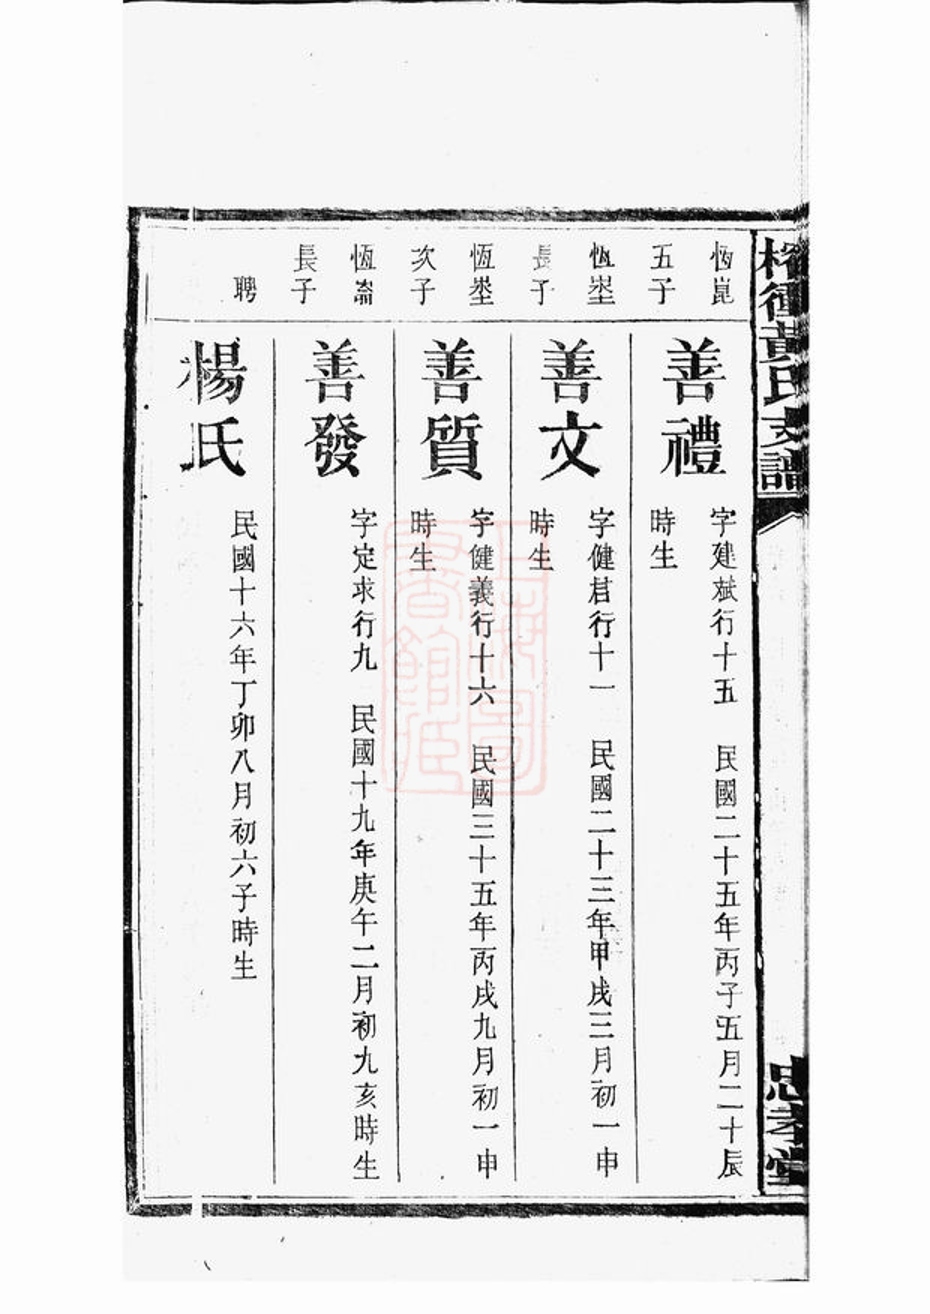 黃氏支譜
忠孝堂
恆崑
五子
善禮
字建斌行十五　民國二十五年丙子五月二十辰
時生
恆埊
長子
善文
字健君行十一　民國二十三年甲戌三月初一申
時生
恆埊
次子
善質
字健義行十六　民國三十五年丙戌九月初一申
時生
恆崙
長子
善發
字定求行九　民國十九年庚午二月初九亥時生
聘
楊氏
民國十六年丁卯八月初六子時生
上海圖
書館藏